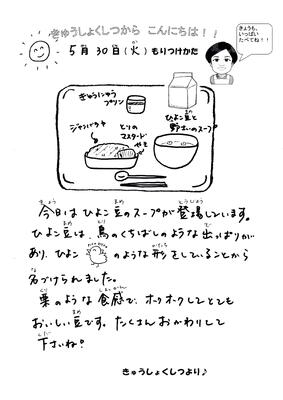 きゅうしょくしつから こんにちは!!
きょうも、
いっぱい
たべてね!!
5月 30日(火) もりつけかた
ぎゅうにゅう
プリン
ジャンバラヤ
とりの
マスタード
やき
ひよこ豆と
野さいのスープ
今日はひよこ豆のスープが登場しています。
ひよこ豆は、鳥のくちばしのような出っぱりが
あり、ひよこ のような形をしていることから
名づけられました。
栗のような食感で、ホクホクしてとても
おいしい豆です。たくさんおかわりして
下さいね♪
きゅうしょくしつより♪